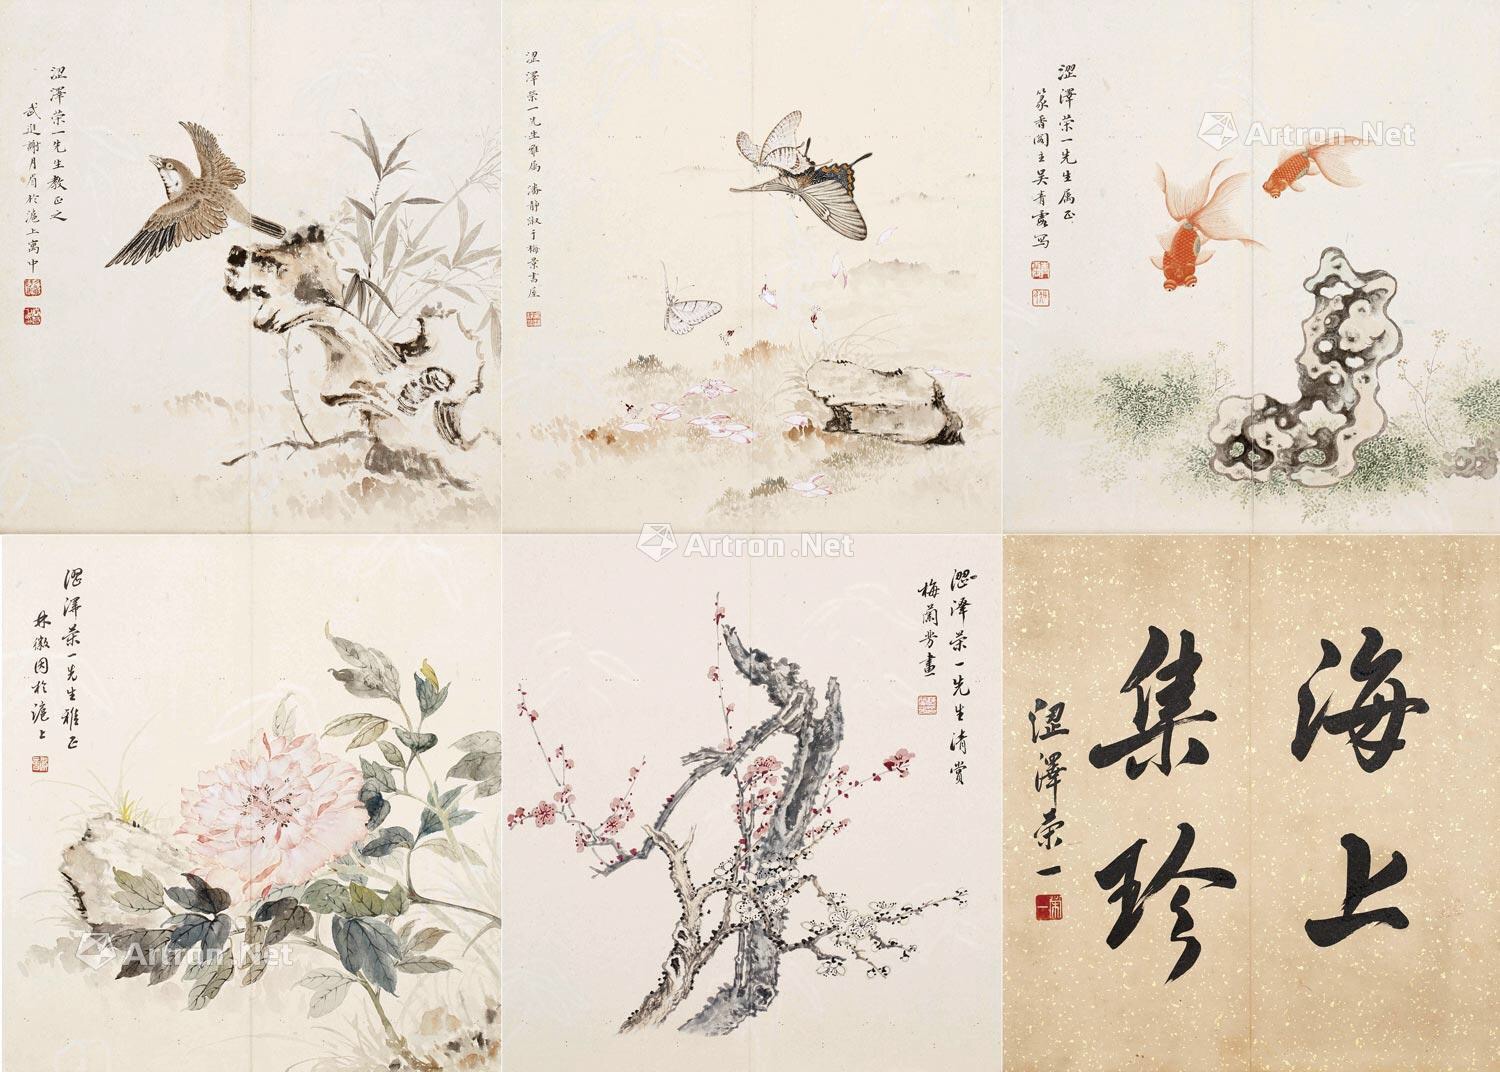 澀澤荣一先生教正之
武进謝月眉於滬上寓中
澀澤荣一先生雅属 潘静淑于梅景書屋
澀澤荣一先生属正
篆香阁主吴青霞写
澀澤荣一先生雅正
林徽因於滬上
澀澤荣一先生清赏
梅蘭芳畫
海上
集珍
澀澤荣一
Artron.Net
Artron.Net
Artron.Net